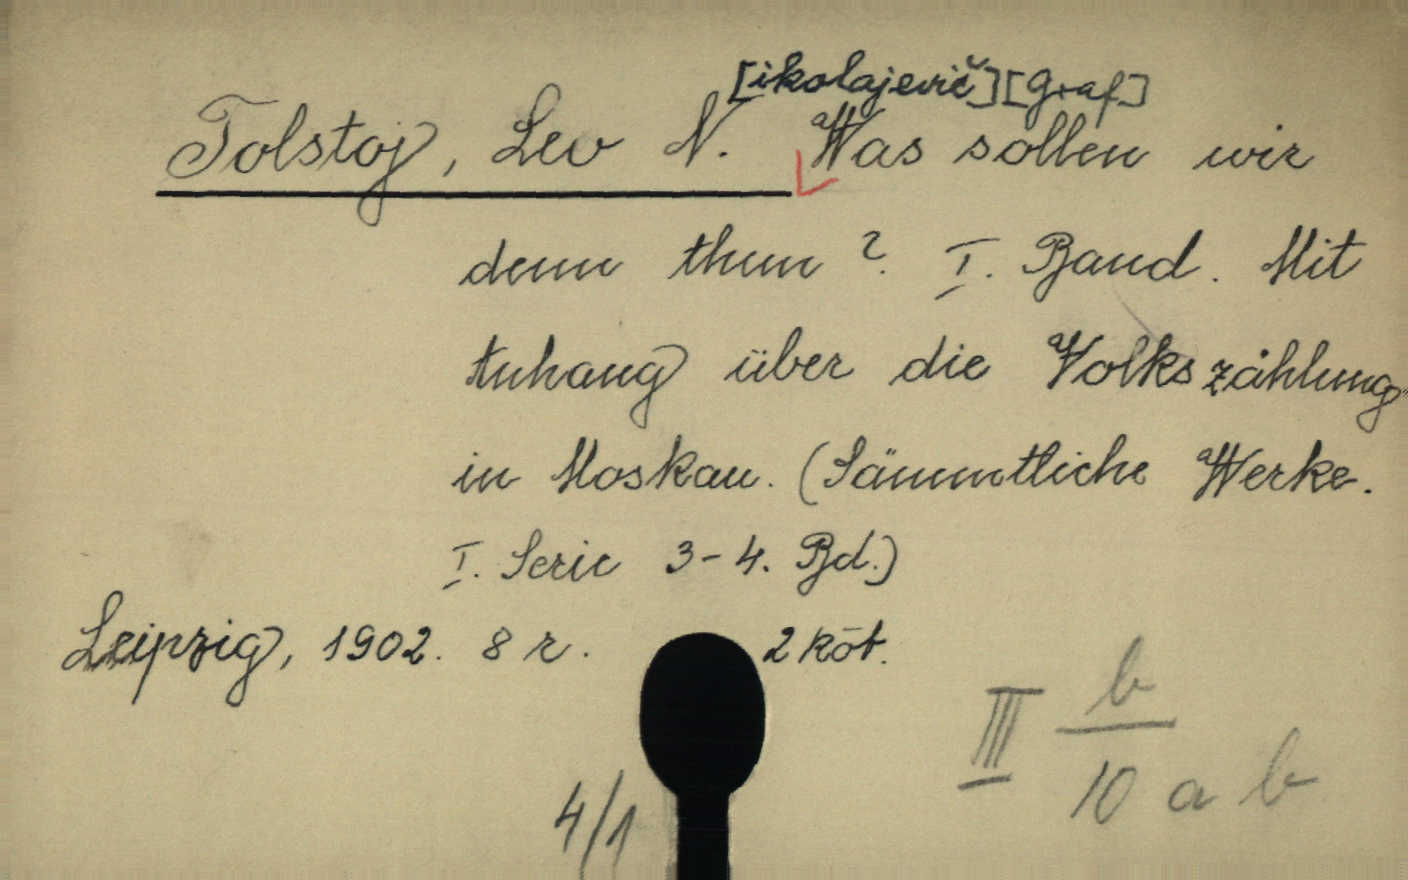 [ikolajevič][Graf]
Tolstoj, Lev N. Was sollen wir
denn thun? I. Band. Mit
Anhang über die Volkszählung
in Moskau. (Sämmtliche Werke.
I. Serie 3-4. Bd.)
Leipzig, 1902. 8 r. 2 köt.
III b
10 a b
4/1